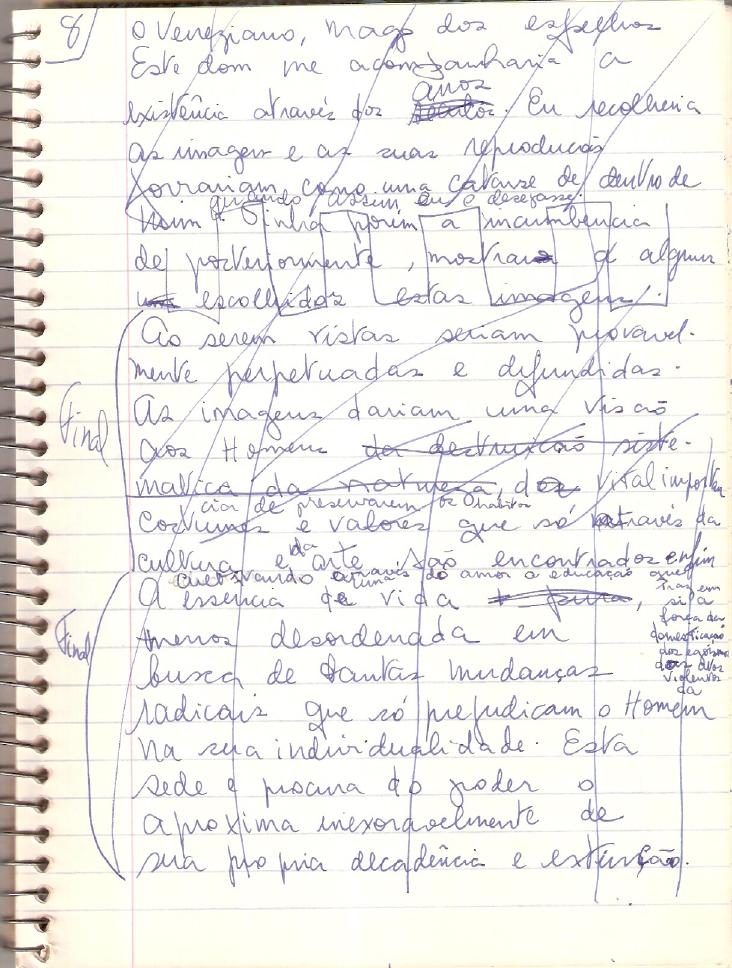 8
O Veneziano, mago dos espelhos
Este dom me acompanharia a
anos
existência através dos séculos. Eu recolheria
as imagens e as suas reproduções
jorrariam como uma catarse de dentro de
quando assim eu o desejasse.
mim. Tinha porém a incumbência
de posteriormente, mostrar a alguns
escolhidos estas imagens.
Ao serem vistas seriam provavel-
mente perpetuadas e difundidas.
As imagens dariam uma visão
Final
aos Homens da destruição siste-
matica da natureza, da vital importan
cia de preservarem os Habitos
costumes e valores que só através da
da
cultura e arte são encontrados enfim
cultivando através do amor a educação que
tras em
A essencia de vida pura,
si a
força da
Final
menos desordenada em
domesticação
dos egoismos
busca de tantas mudanças
dos atos
violentos
da
radicais que só prejudicam o Homem
na sua individualidade. Esta
sede e procura do poder o
aproxima inexoravelmente de
sua propria decadência e extinção.